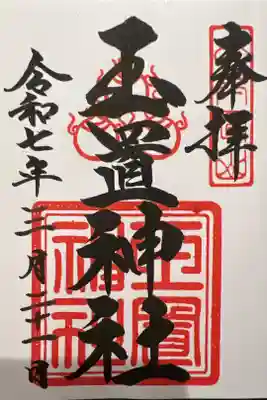 奉拝
玉置神社
令和七年三月二十一日
玉置
神社